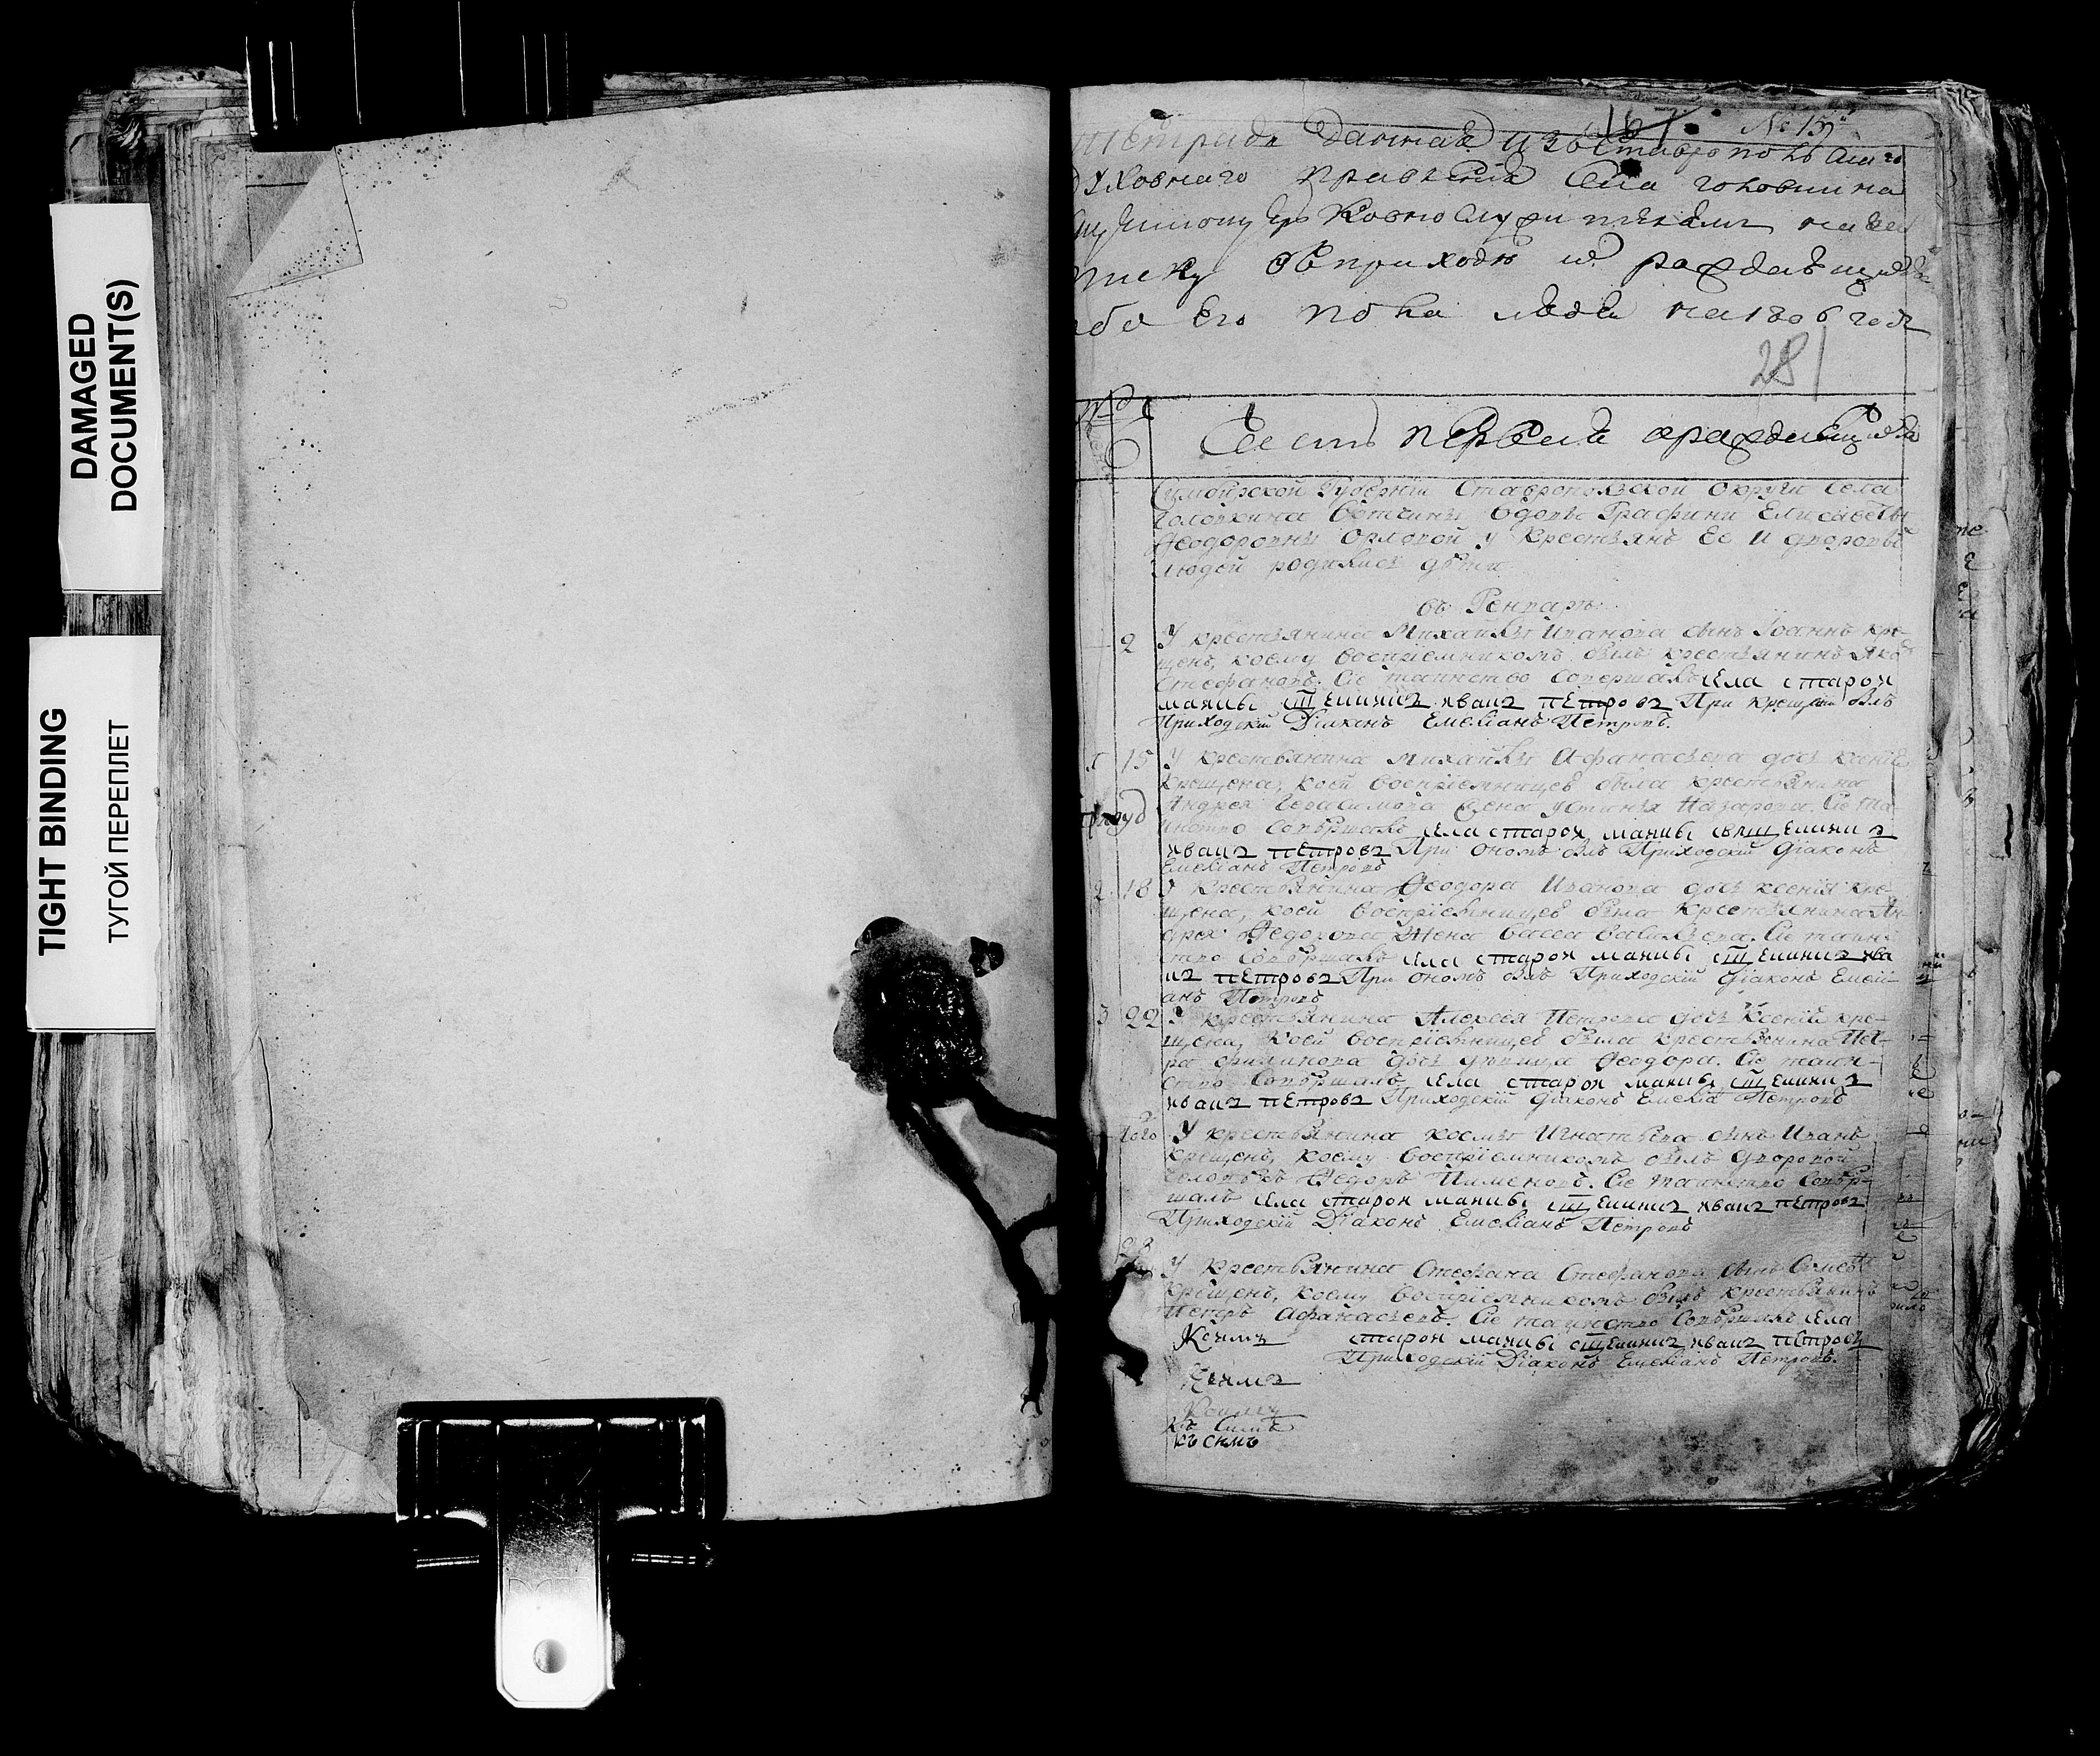 DAMAGED
DOCUMENT(S)
TIGHT BINDING
ТУГОЙ ПЕРЕПЛЕТ
187. № 13
Тетрадь данная изъ Ставропольскаго
духовнаго правления села головкина
священно церковно служителямъ на за
писку въ приходѣ
его на 1806 годъ
281
Часть первая о раждающихся
Симбирской Губерніи Ставропольской округи села
Головкина вотчины вдовы Графини Елисаветы
Ѳеодоровны Орловой у крестьянъ ее и дворовыхъ
людей родились дѣти
въ Генварѣ
2 У крестьянина Михайлы Иванова сынъ Іоаннъ кре-
щенъ, коему воспріемникомъ былъ крестьянинъ Яко
Стефановъ. Сіе таинство совершалъ села старой
маины сщенникъ иванъ петровъ При крещеніи былъ
Приходскій Діаконъ Емеліанъ Петровъ.
15 У крестьянина Михайлы Афанасьева дочь ксенія
крещена, коей воспріемницею была крестьянина
Андрея Герасимова жена устинья Назарова. Сіе та-
инство совершалъ села старой маины свщенникъ
иванъ петровъ При ономъ былъ Приходскій діаконъ
Емеліанъ Петровъ
2 18 У крестьянина Ѳеодора Иванова дочь ксенія кре-
щена, коей воспріемницею была крестьянина Ан-
дрея Ѳедорова жена васса васильева. Сіе таин-
ство совершалъ села старой маины сщенникъ ива
нъ петровъ При ономъ былъ Приходскій діаконъ Емелі-
анъ Петровъ
3 22 У крестьянина Алексея Петрова дочь Ксенія кре-
щена, коей воспріемницею была крестьянина
дочь Ѳеодора. Сіе таин-
ство совершалъ села старой маины сщенникъ
иванъ петровъ Приходскій діаконъ Емеліа Петровъ
У крестьянина космы Игнатьева сынъ Иванъ
крещенъ, коему воспріемникомъ былъ дворовой
человѣкъ Ѳедоръ Пименовъ. Сіе таинство совер-
шалъ села старой маины сщенникъ иванъ петровъ
Приходскій Діаконъ Емеліанъ Петровъ
У крестьянина Стефана Стефанова сынъ
крещенъ, коему воспріемникомъ былъ крестьянинъ
Петръ Афанасьевъ. Сіе таинство совершалъ села
старой маины сщенникъ иванъ петровъ
Приходскій Діаконъ Емеліанъ Петровъ.
къ симъ
къ симъ